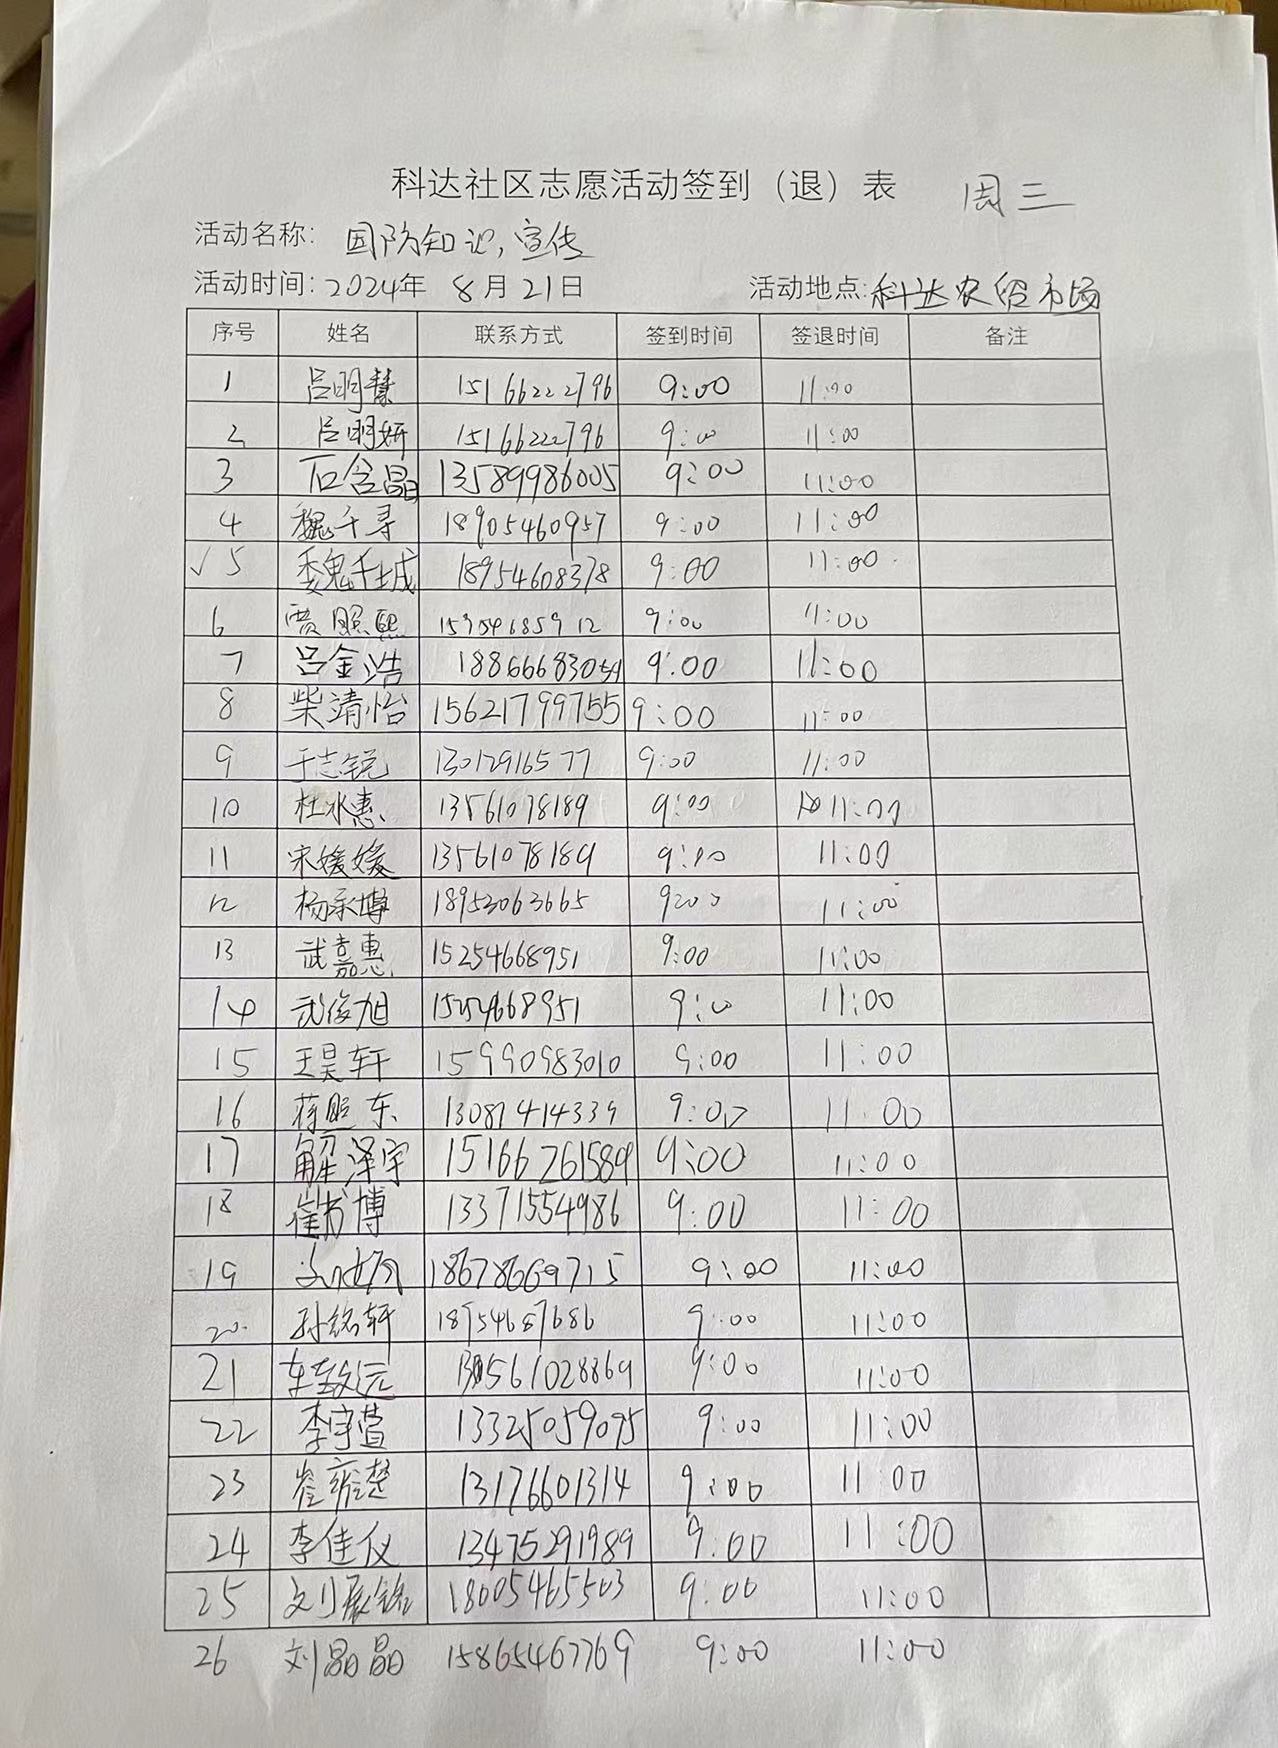 科达社区志愿活动签到（退）表 周三
活动名称: 国防知识,宣传
活动时间: 2024年 8月21日 活动地点:科达农贸市场
序号 姓名 联系方式 签到时间 签退时间 备注
1 吕明慧 15166222796 9:00 11:00
2 吕明妍 15166222796 9:00 11:00
3 石含晶 13589986005 9:00 11:00
4 魏千寻 18905460957 9:00 11:00
√5 魏千城 18954608378 9:00 11:00
6 贾照熙 9:00 11:00
7 吕金浩 9:00 11:00
8 柴靖怡 15621799755 9:00 11:00
9 于志锐 13012916577 9:00 11:00
10 杜水惠 13561078189 9:00 11:00
11 宋媛媛 13561078189 9:00 11:00
12 杨承博 18953063665 9:00 11:00
13 武嘉惠 15254668951 9:00 11:00
14 武俊旭 15254668951 9:00 11:00
15 王昊轩 15990983010 9:00 11:00
16 蒋熙东 13087414339 9:00 11:00
17 解泽宇 15166261589 9:00 11:00
18 崔书博 13371554986 9:00 11:00
19 18678669715 9:00 11:00
20 孙铭轩 18954687686 9:00 11:00
21 车致远 9:00 11:00
22 李宇萱 13325059095 9:00 11:00
23 崔雍楚 13176601314 9:00 11:00
24 李佳仪 13475291989 9:00 11:00
25 刘宸铭 18005465503 9:00 11:00
26 刘晶晶 15865467769 9:00 11:00